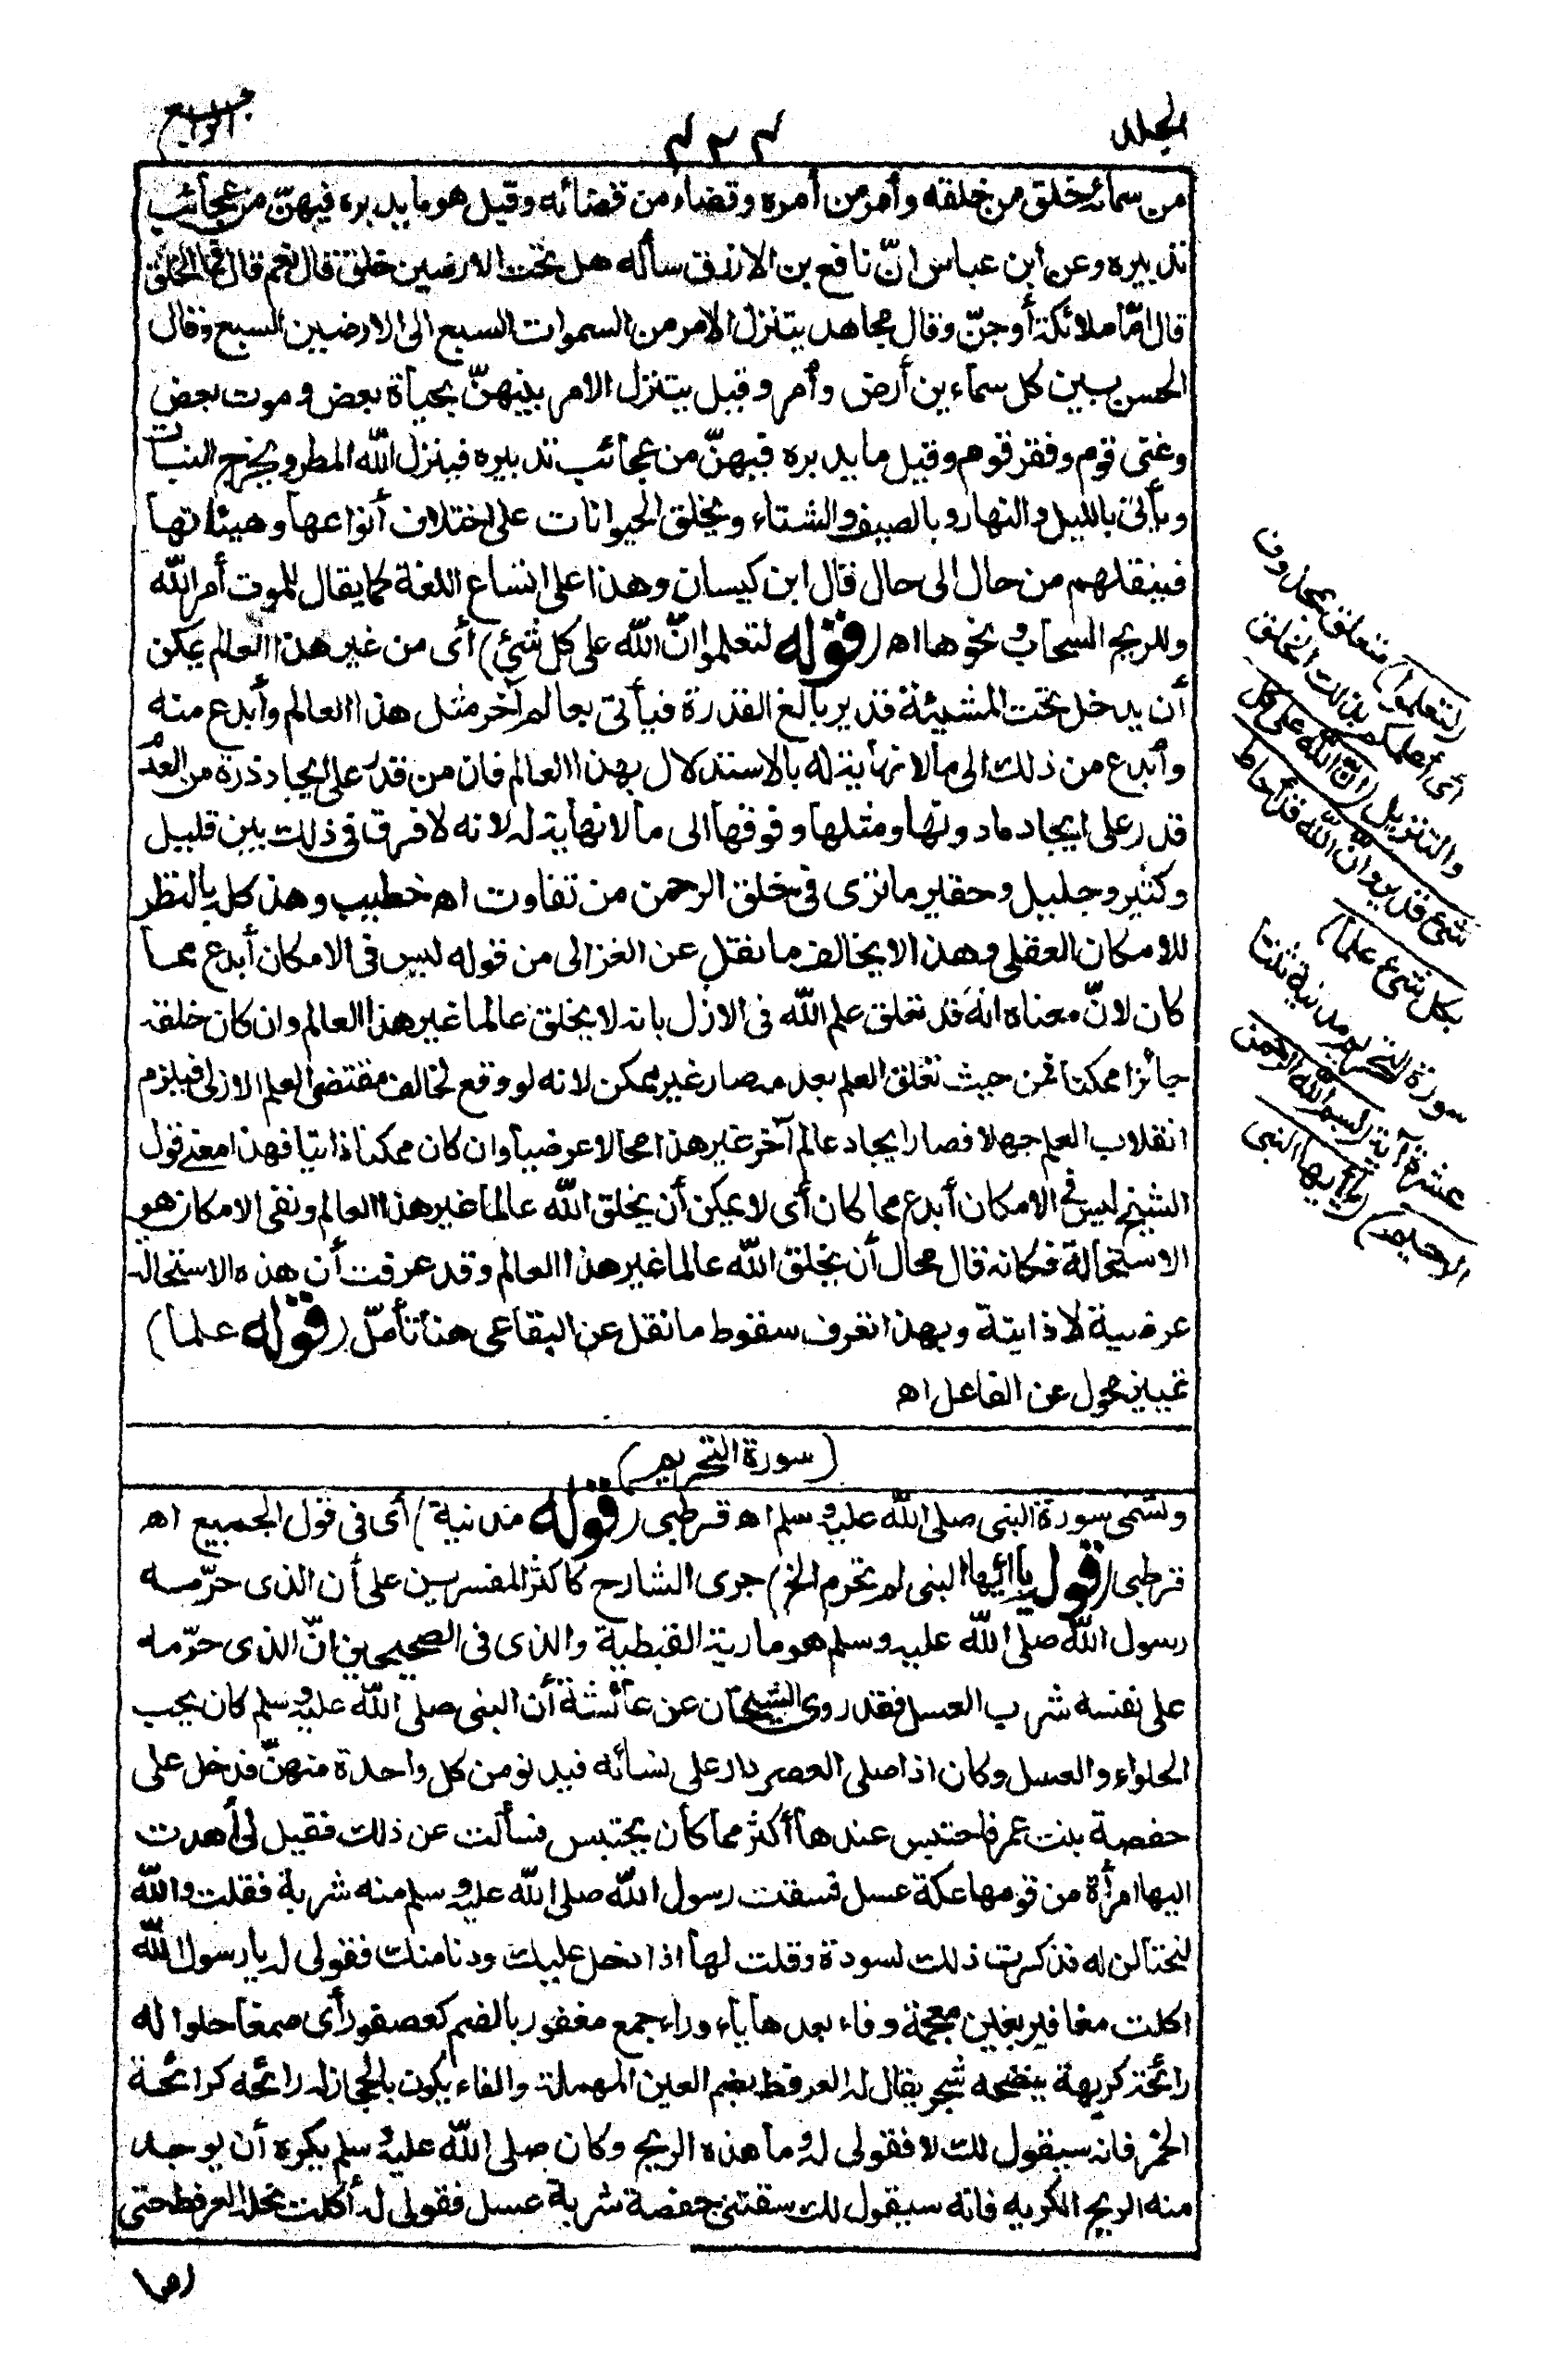 المجلد
٤٢٤
الرابع
من سمائه خلق من خلقه وأمر من أمره وقضاء من قضائه وقيل هو ما يدبره فيهنّ من عجائب
تدبيره وعن ابن عباس انّ نافع بن الازرق سأله هل تحت الارضين خلق قال نعم قال فما الخلق
قال امّا ملائكة أو جنّ وقال مجاهد يتنزل الامر من السموات السبع الى الارضين السبع وقال
الحسن بين كل سماءين أرض وأمر وقيل يتنزل الامر بينهنّ بحياة بعض وموت بعض
وغنى قوم وفقر قوم وقيل ما يدبره فيهنّ من عجائب تدبيره فينزل الله المطر ويخرج النبات
ويأتى بالليل والنهار وبالصيف والشتاء ويخلق الحيوانات على اختلاف أنواعها وهيئاتها
فينقلهم من حال الى حال قال ابن كيسان وهذا على اتساع اللغة كما يقال للموت أمر الله
وللريح السحاب ونحوها اه (قوله لتعلموا انّ الله على كل شئ) أى من غير هذا العالم يمكن
أن يدخل تحت المشيئة قدير بالغ القدرة فيأتى بعالم آخر مثل هذا العالم وأبدع منه
وأبدع من ذلك الى ما لا نهاية له بالاستدلال بهذا العالم فان من قدر على ايجاد ذرة من العدم
قدر على ايجاد ما دونها ومثلها وفوقها الى ما لا نهاية له لانه لا فرق فى ذلك بين قليل
وكثير وجليل وحقير ما ترى فى خلق الرحمن من تفاوت اه خطيب وهذ كله بالنظر
للامكان العقلى وهذا لا يخالف ما نقل عن الغزالى من قوله ليس فى الامكان أبدع مما
كان لانّ معناه انه قد تعلق علم الله فى الازل بانه لا يخلق عالما غير هذا العالم وان كان خلقه
جائزا ممكنا فمن حيث تعلق العلم بعدمه صار غير ممكن لانه لو وقع لخالف مقتضى العلم الازلى فيلزم
انقلاب العلم جهلا فصار ايجاد عالم آخر غير هذا محالا عرضيا وان كان ممكنا ذاتيا فهذا معنى قول
الشيخ ليس فى الامكان أبدع مما كان أى لا يمكن أن يخلق الله عالما غير هذا العالم ونفى الامكان هو
الاستحالة فكانه قال محال أن يخلق الله عالما غير هذا العالم وقد عرفت أن هذه الاستحالة
عرضية لا ذاتية وبهذا تعرف سقوط ما نقل عن البقاعى هنا تأمّل (قوله علما)
تمييز محول عن الفاعل اه
(سورة التحريم)
وتسمى سورة النبى صلى الله عليه وسلم اه قرطبى (قوله مدنية) أى فى قول الجميع اه
قرطبى (قوله يا أيها النبى لم تحرم الخ) جرى الشارح كاكثر المفسرين على أن الذى حرّمه
رسول الله صلى الله عليه وسلم هو مارية القبطية والذى فى الصحيحين انّ الذى حرّمه
على نفسه شرب العسل فقد روى الشيخان عن عائشة أن النبى صلى الله عليه وسلم كان يحب
الحلواء والعسل وكان اذا صلى العصر دار على نسائه فيدنو من كل واحدة منهنّ فدخل على
حفصة بنت عمر فاحتبس عندها أكثر مما كان يحتبس فسألت عن ذلك فقيل لى أهدت
اليها امرأة من قومها عكة عسل فسقت رسول الله صلى الله عليه وسلم منه شربة فقلت والله
لنحتالن له فذكرت ذلك لسودة وقلت لها اذا دخل عليك ودنا منك فقولى له يا رسول الله
اكلت مغافير بغين معجمة وفاء بعدها ياء وراء جمع مغفور بالضم كعصفور أى صمغا حلوا له
رائحة كريهة ينضحه شجر يقال له العرفط بضم العين المهملة والفاء يكون بالحجاز له رائحة كرائحة
الخمر فانه سيقول لك لا فقولى له وما هذه الريح وكان صلى الله عليه وسلم يكره أن يوجد
منه الريح الكريه فانه سيقول لك سقتنى حفصة شربة عسل فقولى له أكلت نحله العرفط حتى
(لتعلموا) متعلق بمحذوف
أى أعلمكم بذلك الخلق
والتنزيل (انّ الله على كل
شئ قدير وانّ الله قد أحاط
بكل شئ علما)
سورة التحريم مدنية ثنتا
عشرة آية بسم الله الرحمن
الرحيم (يا أيها النبى